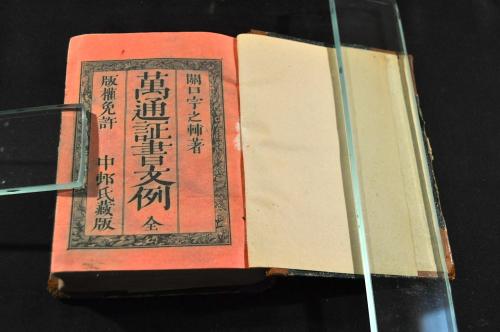 關口宇之輔著
萬通証書文例 全
版權免許 中邨氏藏版